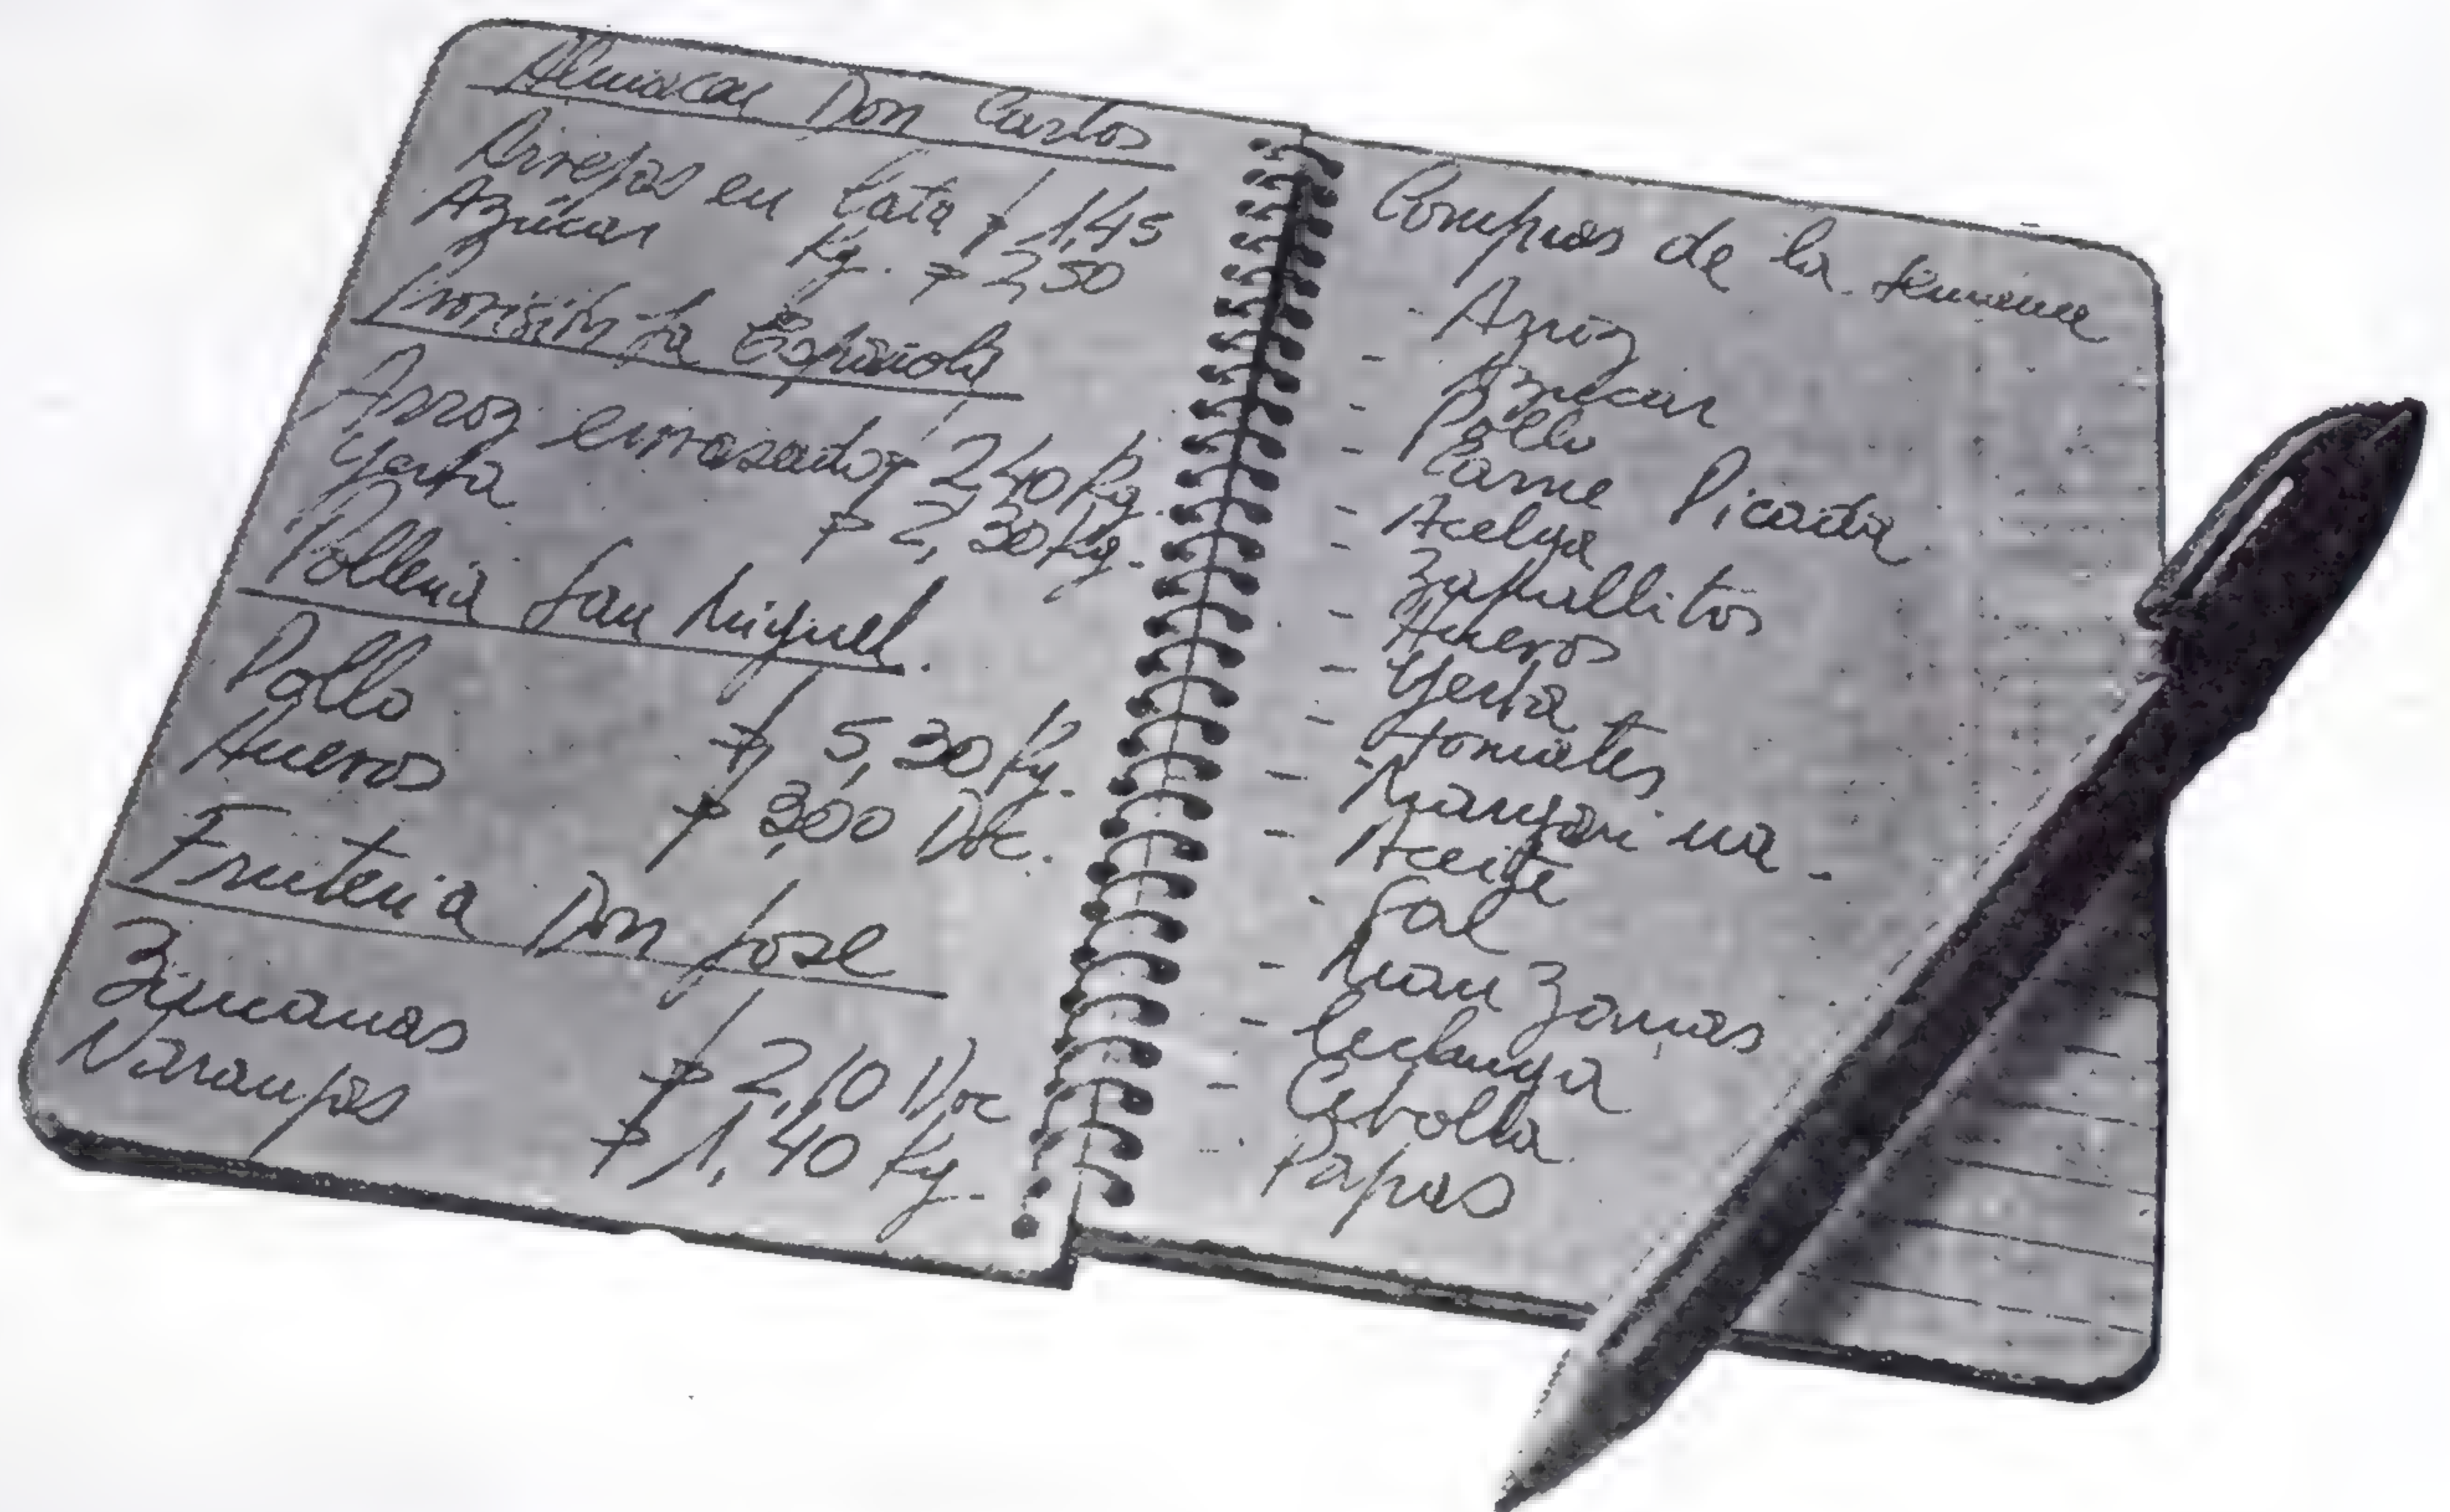 Almacen Don Carlos
Arvejas en lata $ 1,45
Azúcar Kg. $ 2,50
Provisión La Española
Arroz envasado $ 2,40 Kg.
Yerba $ 2,30 Kg.
Polleria San Miguel.
Pollo $ 5,30 Kg.
Huevos $ 3,00 Doc.
Fruteria Don Jose
Bananas $ 2,10 Doc
Naranjas $ 1,40 Kg.
Compras de la semana
- Arroz
- Azucar
- Pollo
- Carne Picada
- Acelga
- Zapallitos
- Huevos
- Yerba
- tomates
- Margarina -
- Aceite
- Sal
- Manzanas
- lechuga
- Cebolla
- Papas